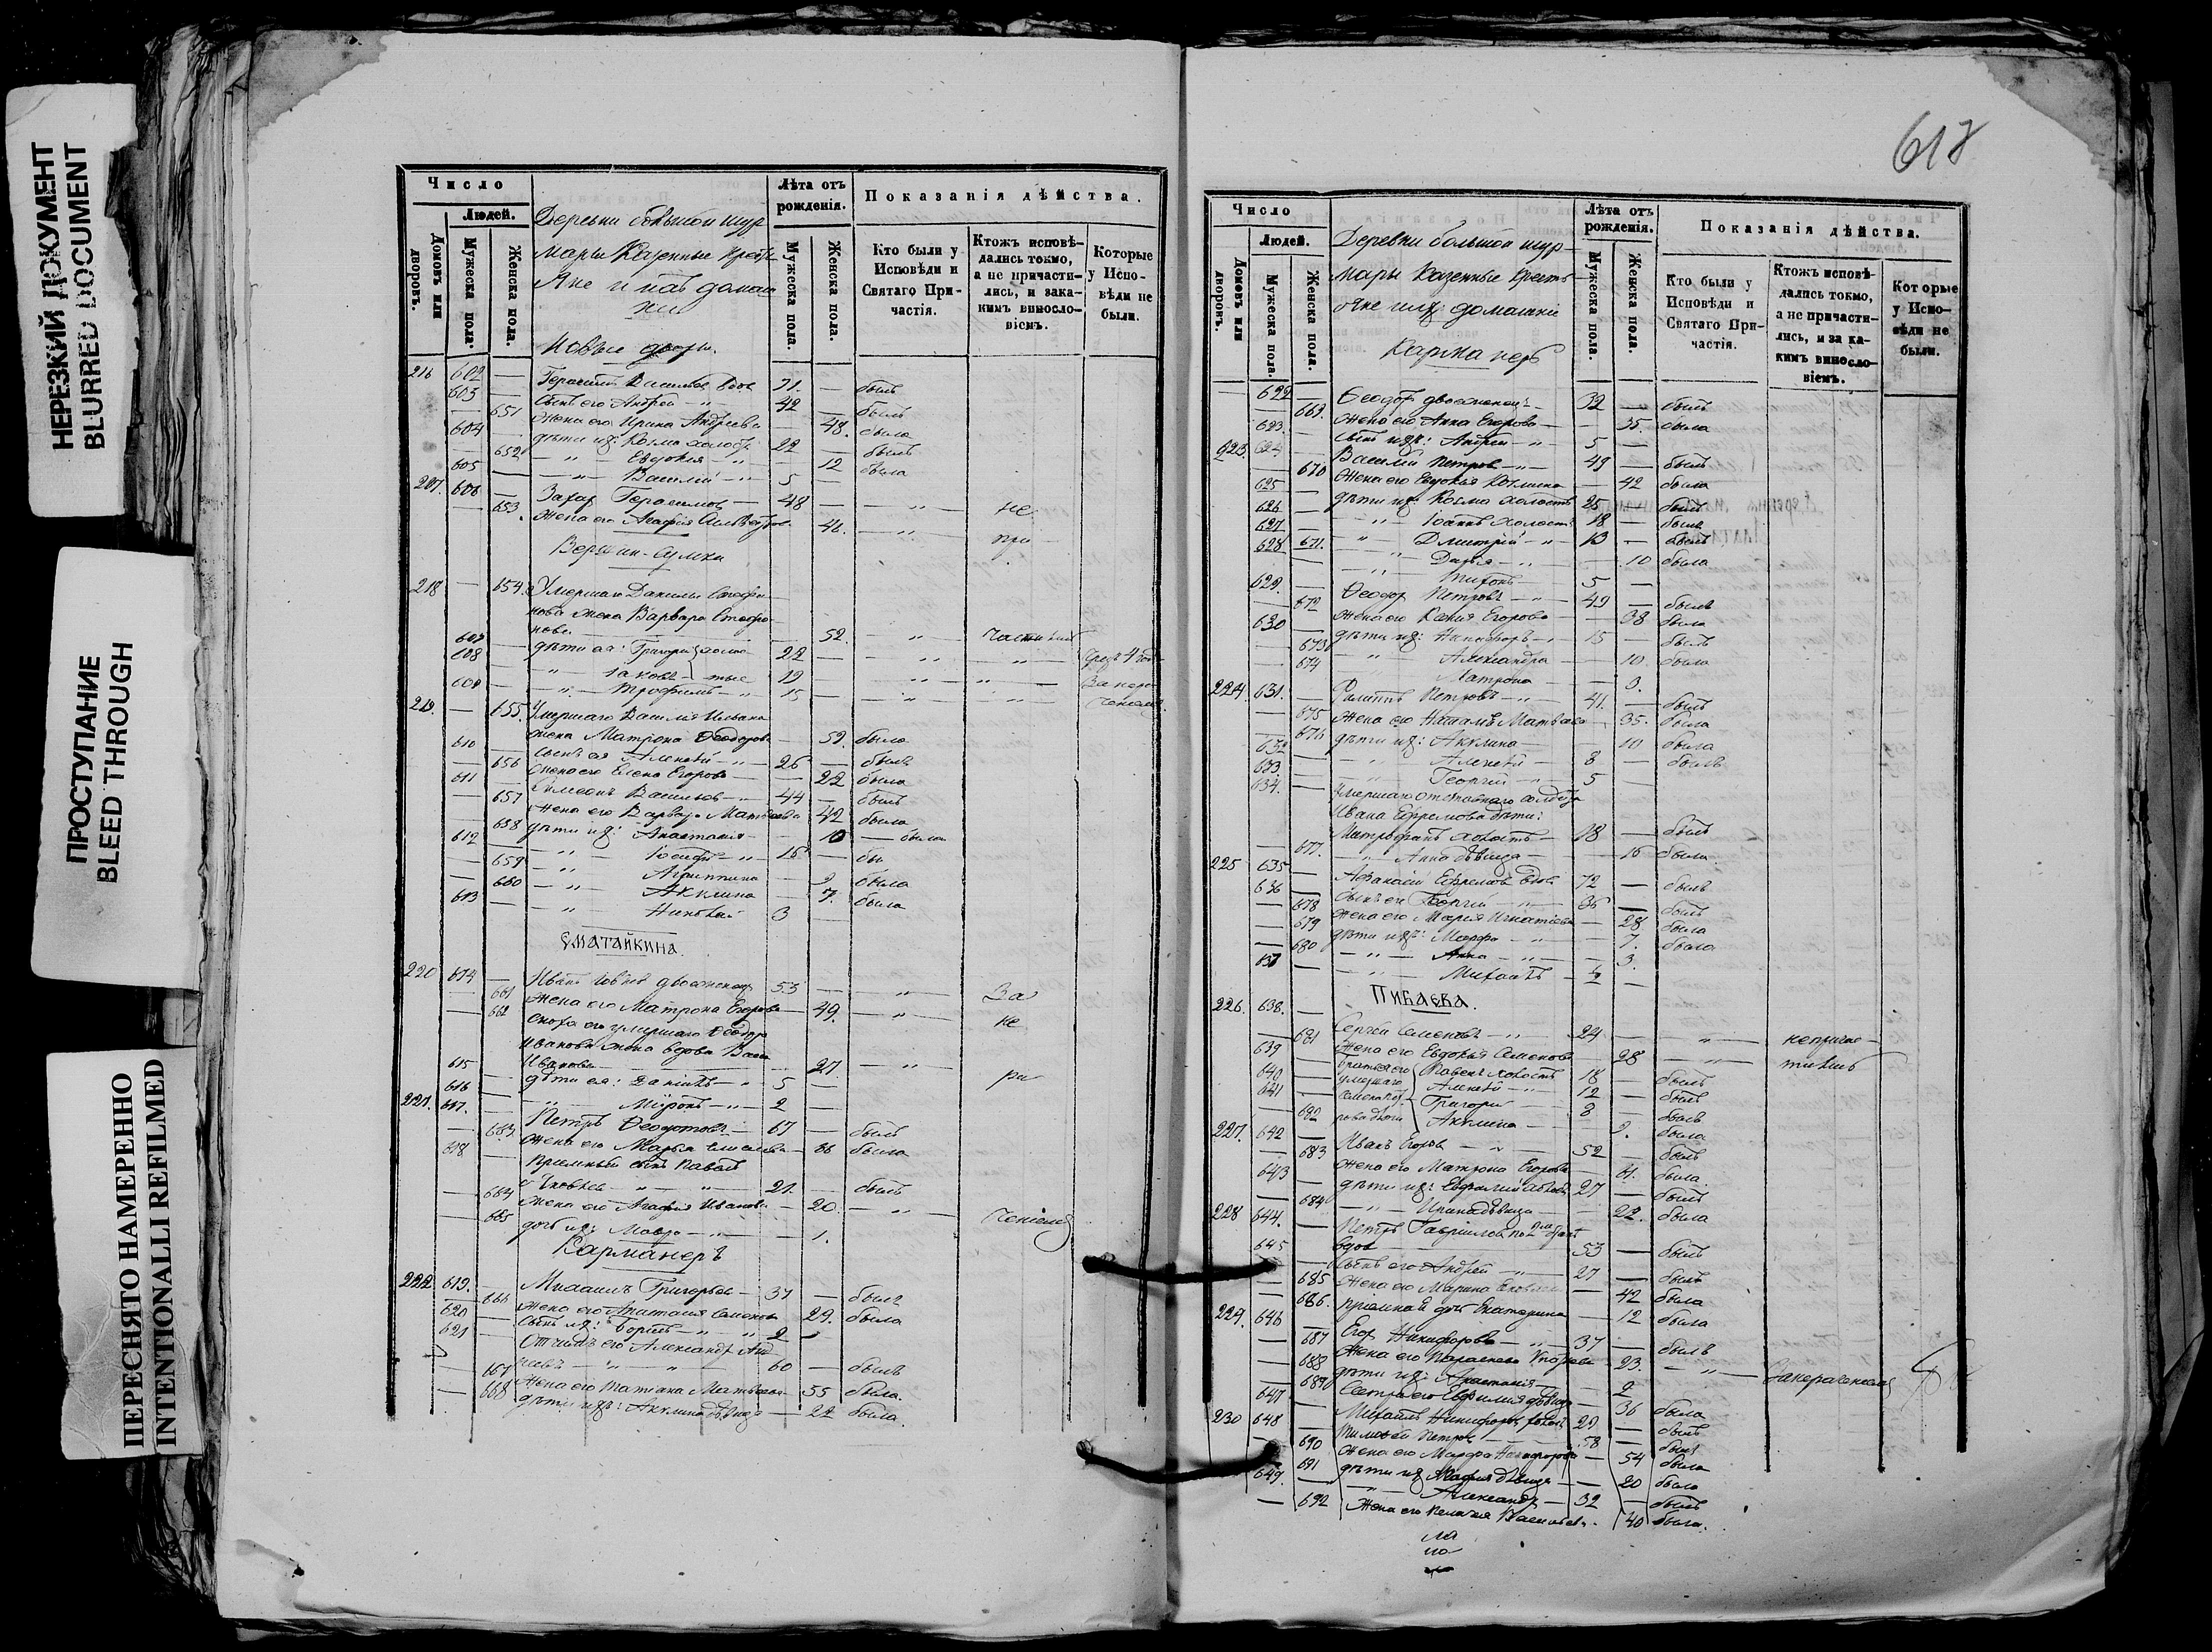 НЕРЕЗКИЙ ДОКУМЕНТ
BLURRED DOCUMENT
ПРОСТУПАНИЕ
BLEED THROUGH
ПЕРЕСНЯТО НАМЕРЕННО
INTENTIONALLI REFILMED
Число
Людей.
Домовъ или дворовъ.
Мужеска пола.
Женска пола.
Деревни большой шур
мары Казенные Крестья
Яне и ихъ домаш
Новые дворы.
Лѣта отъ рожденія.
Мужеска пола.
Женска пола.
Показанія дѣйства.
Кто были у Исповѣди и Святаго Причастія.
Ктожъ исповѣдались токмо, а не причастились, и закакимъ винословіемъ.
Которые у Исповѣди не были.
216 602 — Герасимъ Васильевъ вдов 71. — былъ
603 — Сынъ его Андрей 42 — былъ
— 651 Жена его Ирина Андреева — 48. была
604 — дѣти ихъ: Козма холост 22 — былъ
— 652 Евдокия — 12 была
605 — Василий 5 —
217. 606 — Захар Герасимов 48 — не
— 653. Жена его Агафія — 46. при
218 — 654. Умершаго Данилы Стефа
нова жена Варвара Стефа
нова — 52.
607 — дѣти ея: Григорий холос 22 —
608 — Іаковъ тые 19
609 — Трофимъ 15
219. — 655. Умершаго Василія Ивана
жена Матрона Ѳеодоров — 59. была
610 — Сынъ ея Алексѣй 26 — былъ
— 656 Жена его Елена Егорова — 22 была
611 — Симеонъ Васильев 44 — былъ
— 657 Жена его Варвара Матвеева 42 была
— 658 дѣти ихъ: Анастасия — 10 — была
612 — Іосифъ 15 — бы
— 659 Агриппина — 9 была
— 660 Акулина — 7. была
613 — Николай 3
ЄМАТАЙКИНА.
220 614 — Иванъ двоеженец 53 — За
— 661 Жена его Матрона Егорова — 49. не
— 662 Сноха его умершаго Ѳеодора
Иванова жена вдова Васса
Иванова — 27 ра
615 — дѣти ея: Даніилъ 5 —
616 — Миронъ 2 —
221. 617. — Петръ Ѳеодотовъ 67 — былъ
— 663. Жена его Марья — 66 была
618 — Приемный сынъ Павелъ
Яковлев 21. — былъ
— 664 Жена его Агафия Иванова — 20.
— 665 дочь ихъ Мавра — 1.
Карманеръ
222 619. — Михаилъ Григорьев 37 — былъ
— 666 Жена его Анастасия Семенова — 29. была
620 — Сынъ ихъ: Борисъ 2 —
621 — Отчимъ его Александръ Анд
реевъ 60 — былъ
— 667 Жена его Татиана Матвеева — 55 была.
— 668 дѣти ихъ: Акулина дѣвица — 22 была.
617
Число
Людей.
Домовъ или дворовъ.
Мужеска пола.
Женска пола.
Деревни большой шур
мары Казенные Кресть
яне ихъ домашніе
Карманеръ
Лѣта отъ рожденія.
Мужеска пола.
Женска пола.
Показанія дѣйства.
Кто были у Исповѣди и Святаго Причастія.
Ктожъ исповѣдались токмо, а не причастились, и за какимъ винословіемъ.
Которые у Исповѣди не были.
622 — Ѳеодоръ двоеженецъ 32 — былъ
— 669. Жена его Анна Егорова — 35. была
623. — Сынъ ихъ: Андрей 5 —
223. 624 — Василій Петров 49 — былъ
— 670 Жена его Евдокия Козмина — 42 была
625 — дѣти ихъ: Козма холостъ 25 — былъ
626 — Іоаннъ холостъ 18 — былъ
627 — Дмитрій 13 — былъ
— 671. Дарья — 10 была
628 — Тихонъ 5 —
629. — Ѳеодоръ Петровъ 49 — былъ
— 672 Жена его Ксения Егорова — 38 была
630 — дѣти ихъ: Никифоръ 15 — былъ
— 673 Александра — 10. была
— 674 Матрона — 3.
224 631. — Филиппъ Петровъ 41. — былъ
— 675 Жена его Наталья Матвеева — 35. была
— 676 дѣти ихъ: Акулина — 10 была
632 — Алексѣй 8 — былъ
633 — Георгий 5 —
634. — Умершаго отставнаго солдата
Ивана Ефремова дѣти:
Митрофанъ холостъ 18 — былъ
— 677. Анна дѣвица — 16 была.
225 635 — Афанасий Ефремовъ вдов 72 — былъ
636 — Сынъ его Георгий 36 — былъ
— 678 Жена его Мария Игнатиева — 28 была
— 679 дѣти ихъ: Марфа — 7. была
— 680 Анна — 3.
637 — Михаилъ 4 —
ПИБАЕВА.
226. 638. — Сергѣй Семеновъ 24 — непричас
— 681 Жена его Евдокия Семенова — 28 тились
639 — Братья его умершаго Семена дѣти Павелъ холостъ 18 — былъ
640 — Алексѣй 12 — былъ
641 — Григорий 8 — былъ
— 682 Акулина — 9. была
227. 642 — Иванъ Егоров 52 — былъ
— 683 Жена его Матрона Егорова — 61. была.
643 — дѣти ихъ: 27 — былъ
— 684 Ирина дѣвица — 22. была
228 644. — Петръ Гавриловъ по 2мъ бракѣ
вдов 53 — былъ
645 — Сынъ его Андрей 27 — былъ
— 685 Жена его Марина — 42 была
— 686. приемная дочь Екатерина — 12 была
229. 646 — Егоръ Никифоровъ 37 — былъ
— 687 Жена его Параскева — 23.
— 688 дѣти ихъ: Анастасия — 2
— 689 Сестра его Евфимия дѣвица — 36 была
647 — Михаилъ Никифоровъ 29 — былъ
230 648 — Тимофей Петров 58 — былъ
— 690 Жена его Марфа Никифорова — 54 была
— 691 дѣти ихъ Мария дѣвица — 20 была
649. — Александръ 32 — былъ
— 692 Жена его Пелагия Васильева. — 40 была.